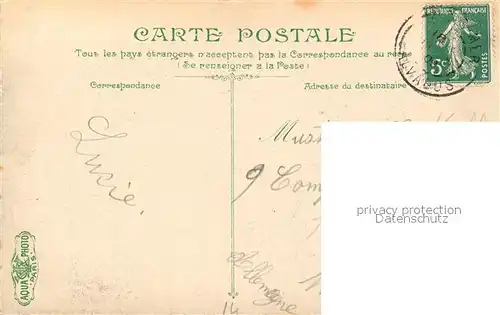 CARTE POSTALE
Tous les pays étrangers n'acceptent pas la Correspondance au re
(Se renseigner à la Poste)
Correspondance
Adresse du destinataire
RÉPUBLIQUE FRANÇAISE
5c
POSTES
CALVADOS
Lucie.
Mus
9 Com
Allemagne
14
AQUA PHOTO
PARIS
privacy protection
watermark